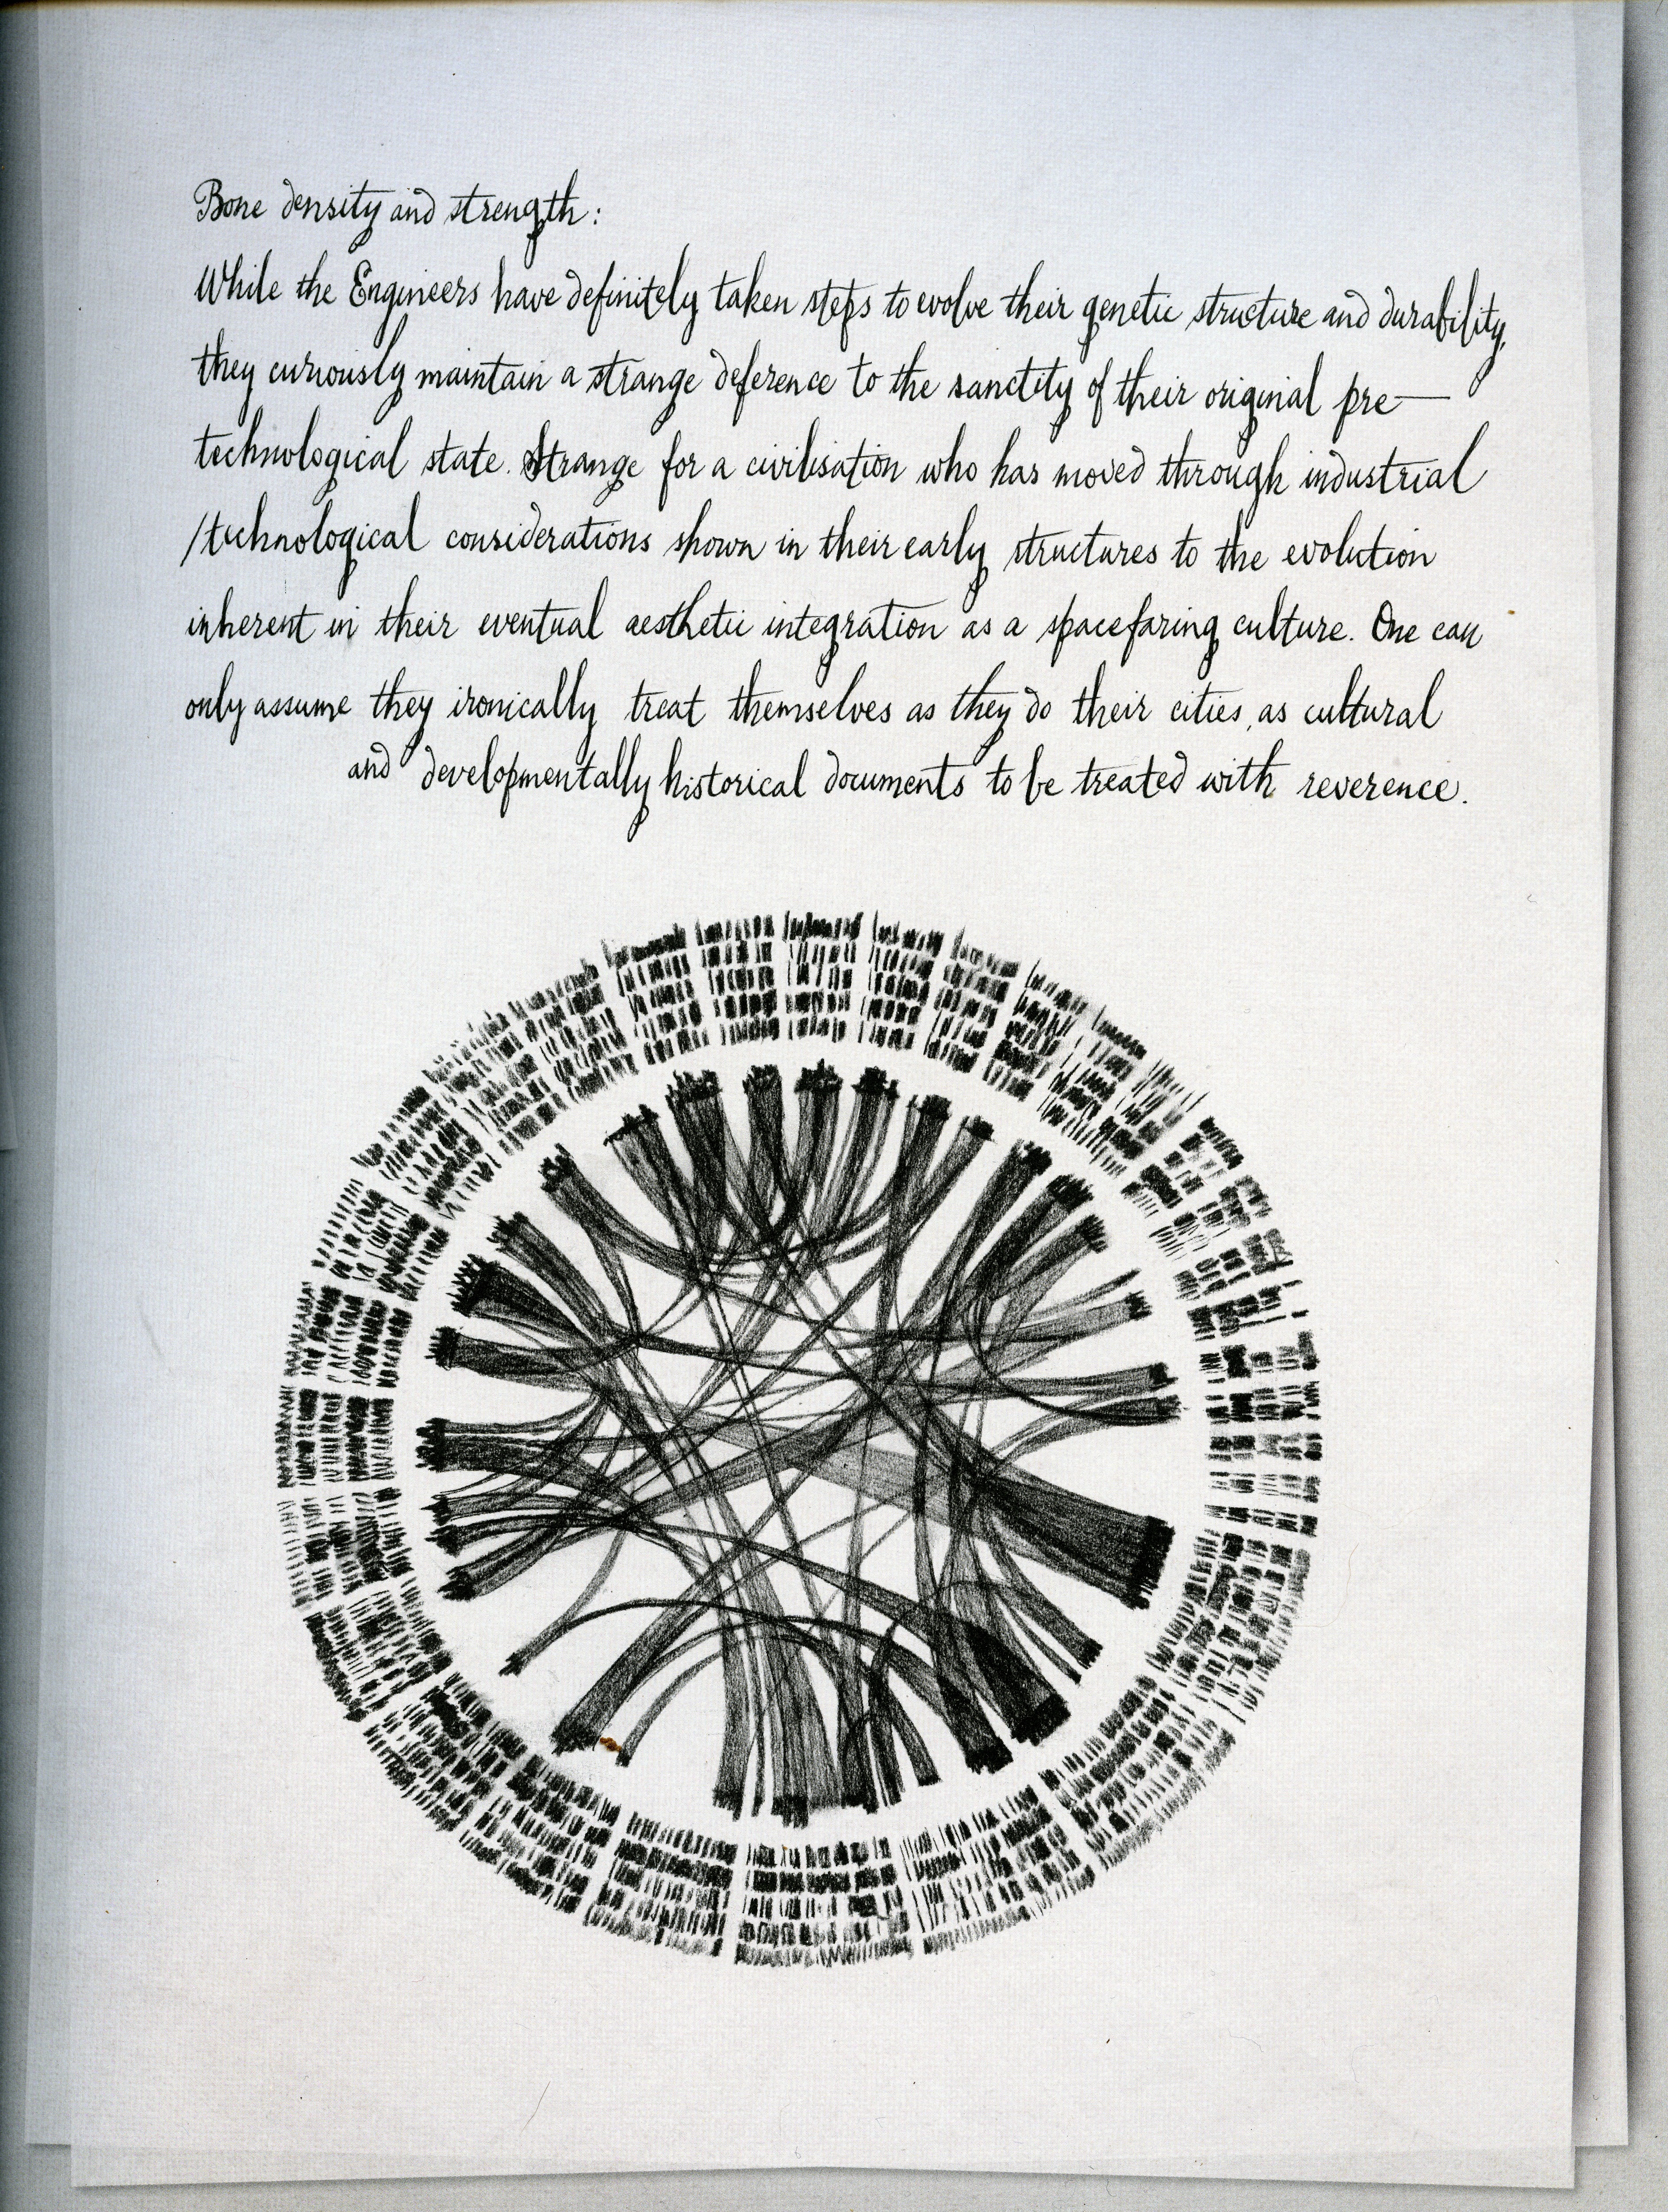 Bone density and strength:
While the Engineers have definitely taken steps to evolve their genetic structure and durability,
they curiously maintain a strange deference to the sanctity of their original pre—
technological state. Strange for a civilisation who has moved through industrial
/technological considerations shown in their early structures to the evolution
inherent in their eventual aesthetic integration as a spacefaring culture. One can
only assume they ironically treat themselves as they do their cities, as cultural
and developmentally historical documents to be treated with reverence.